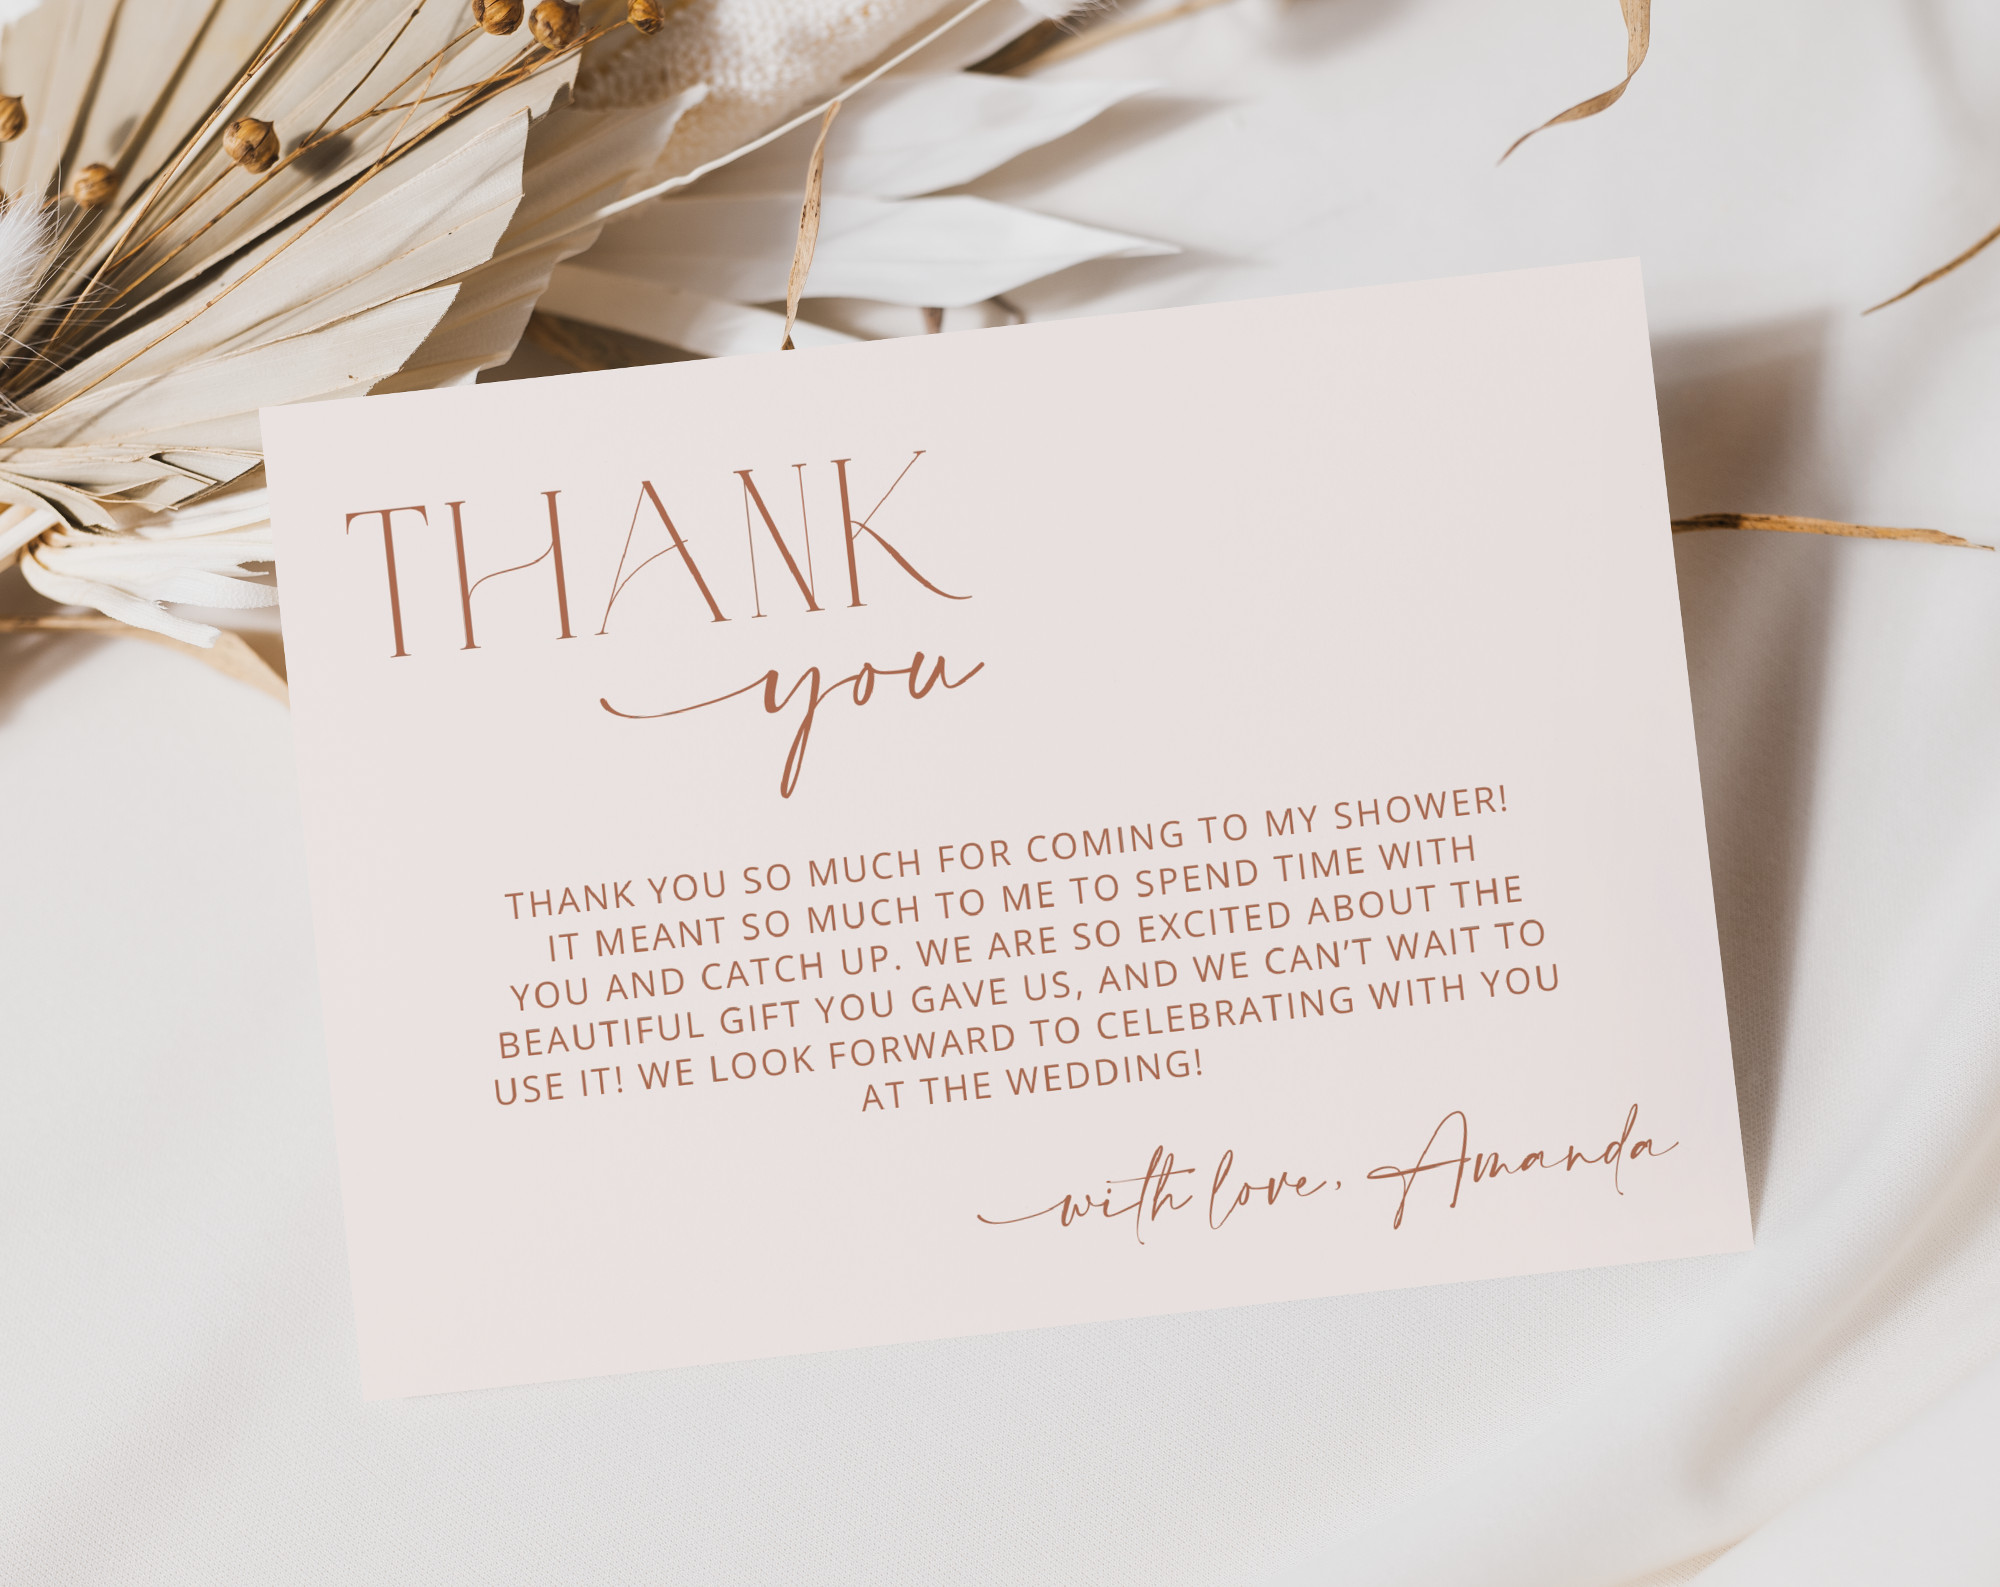 THANK
you
THANK YOU SO MUCH FOR COMING TO MY SHOWER!
IT MEANT SO MUCH TO ME TO SPEND TIME WITH
YOU AND CATCH UP. WE ARE SO EXCITED ABOUT THE
BEAUTIFUL GIFT YOU GAVE US, AND WE CAN'T WAIT TO
USE IT! WE LOOK FORWARD TO CELEBRATING WITH YOU
AT THE WEDDING!
with love, Amanda